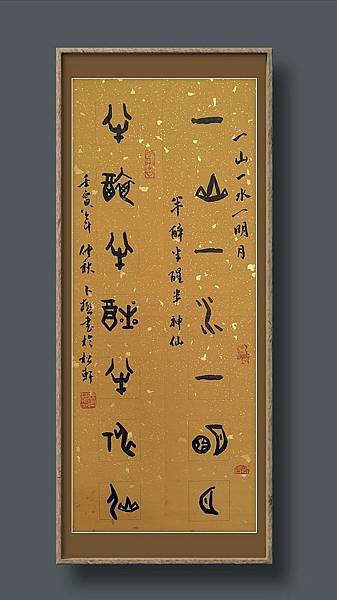 一山一水一明月
一山一水一明月
半醉半醒半神仙
半醉半醒半神仙
壬寅年仲秋卜書於松軒